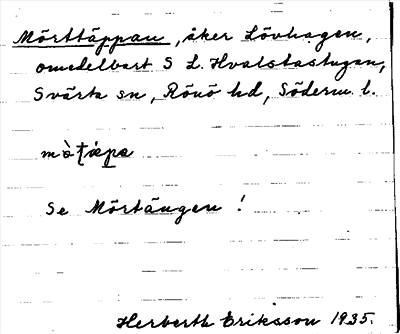 Mörttäppan, åker Lövhagen,
omedelbart S L. Hvalstastugan,
Svärta sn, Rönö hd, Söderm. l.
Se Mörtängen!
Herberth Eriksson 1935.